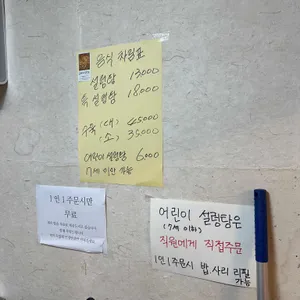 음식 차림표
설렁탕 13,000
특 설렁탕 18,000
수육 (대) 45,000
(소) 35,000
어린이 설렁탕 6,000
7세 이만 가능
1인 1주문시만
무료
어린이 설렁탕은
(7세 이하)
직원에게 직접주문
1인 1주문시 밥 사리 리필
가능